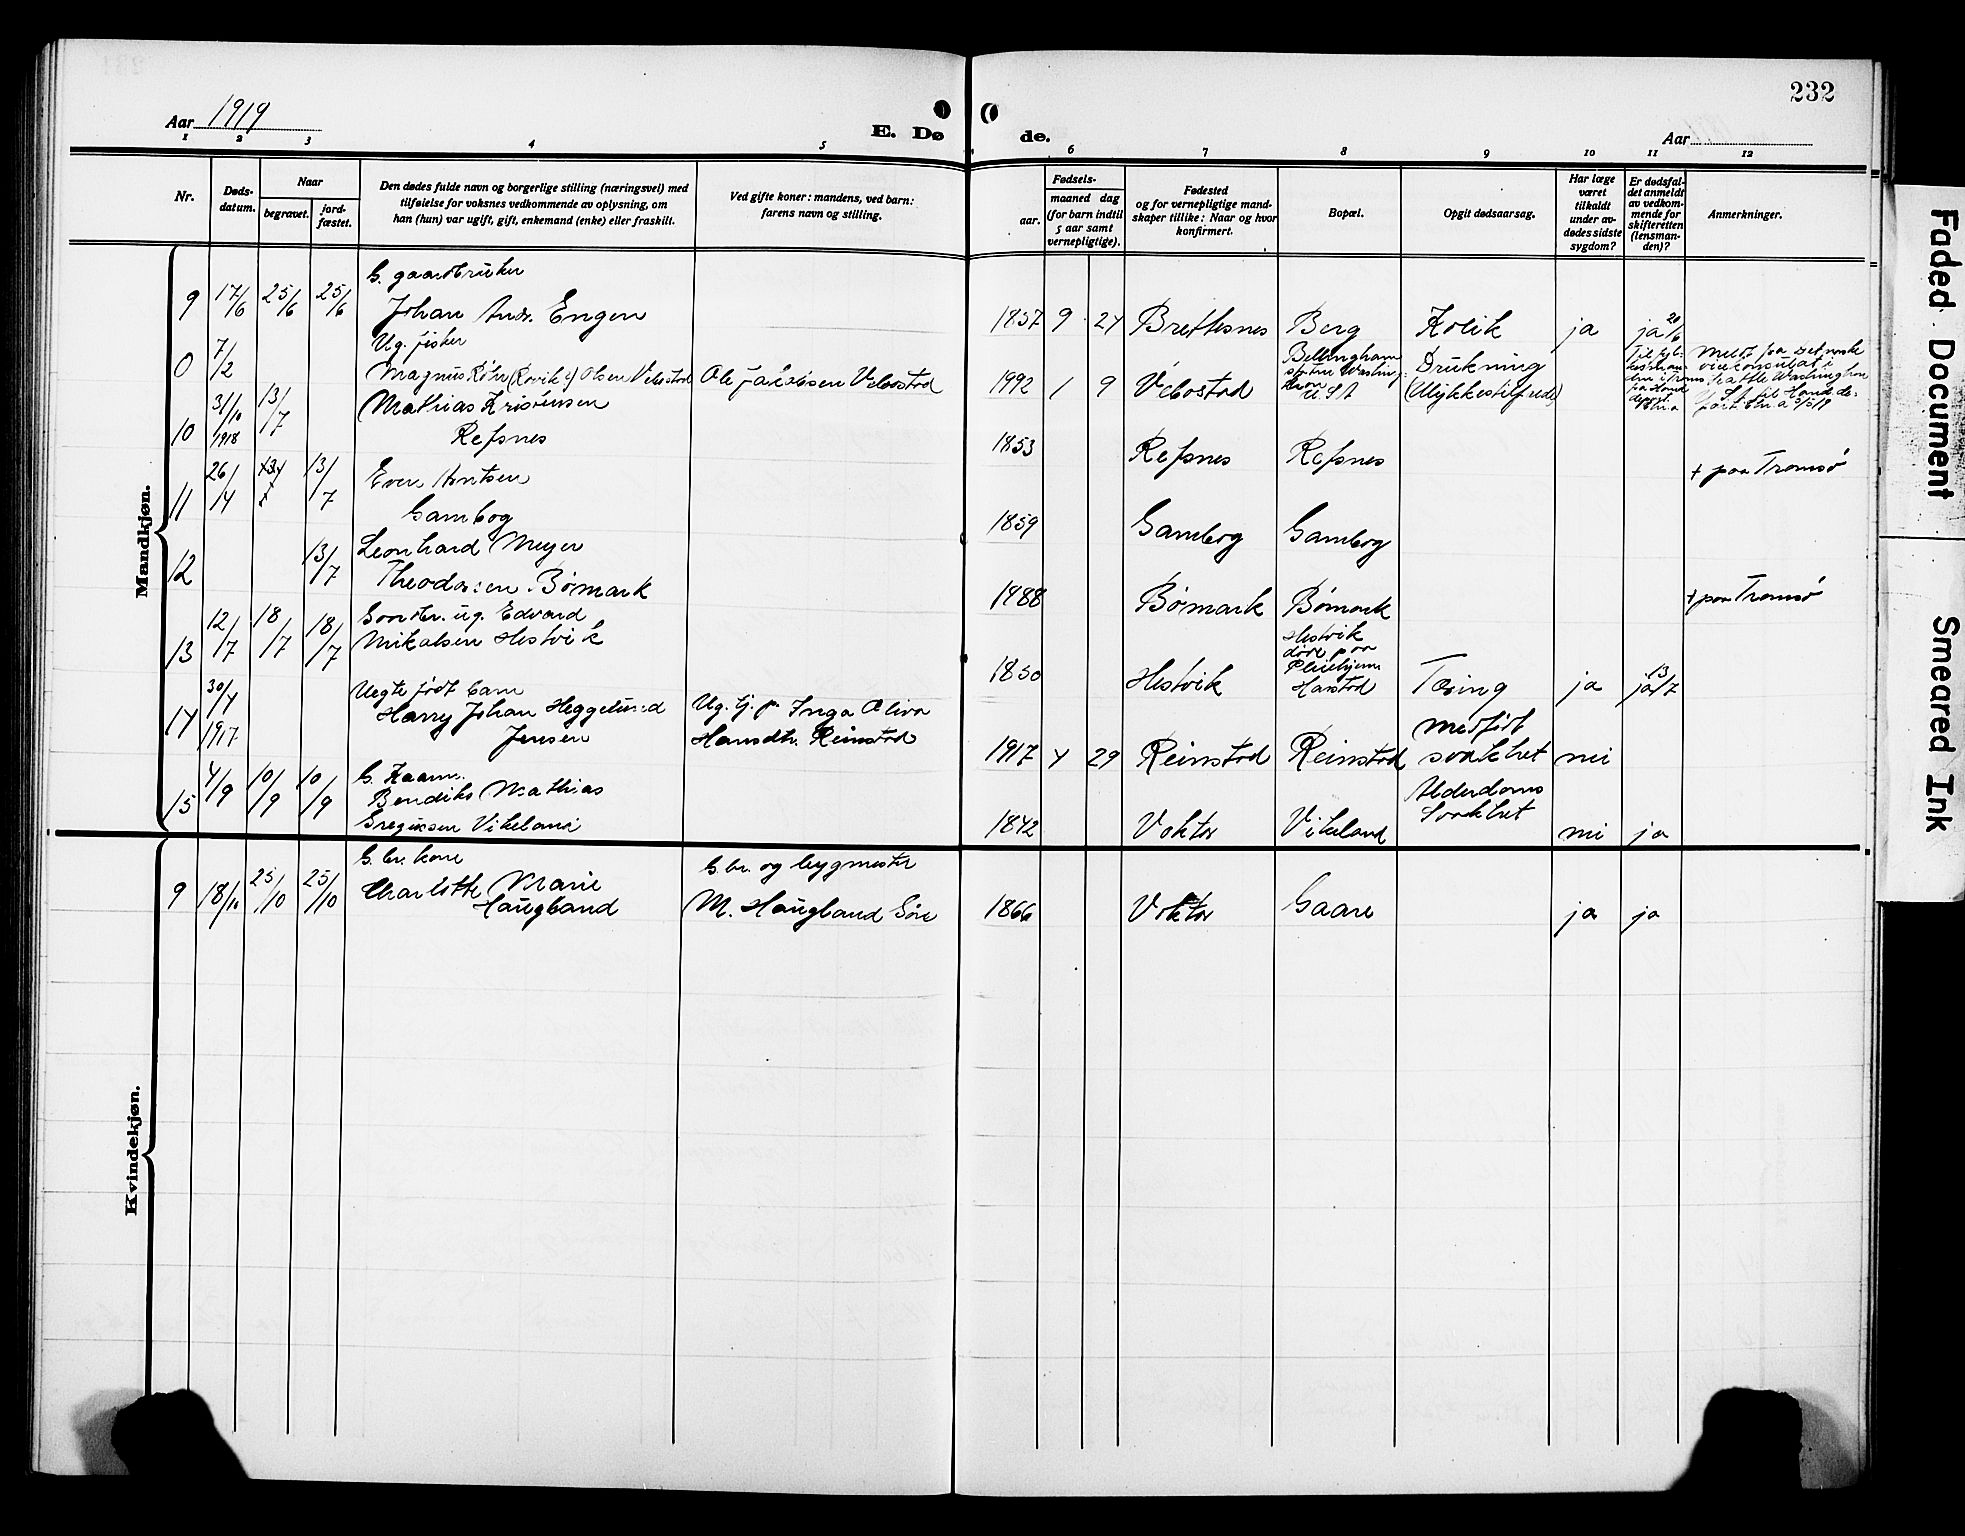 232
Aar 1919
E. Dø
de.
Aar
1 2 3 4 5 6 7 8 9 10 11 12
Nr.
Døds-
datum.
Naar
begravet.
jord-
fæstet.
Den dødes fulde navn og borgerlige stilling (næringsvei) med
tilføielse for voksnes vedkommende av oplysning, om
han (hun) var ugift, gift, enkemand (enke) eller fraskilt.
Ved gifte koner: mandens, ved barn:
farens navn og stilling.
Fødsels-
aar.
maaned dag
(for barn indtil
5 aar samt
vernepligtige).
Fødested
og for vernepligtige mand-
skaper tillike: Naar og hvor
konfirmert.
Bopæl.
Opgit dødsaarsag.
Har læge
været
tilkaldt
under av-
dødes sidste
sygdom?
Er dødsfal-
det anmeldt
av vedkom-
mende for
skifteretten
(lensman-
den)?
Anmerkninger.
Mandkjøn.
G. gaardbruker
9 17/6 25/6 25/6 Johan Andr. Engen 1857 9 24 Brettesnes Berg Kolik ja ja 20/6
Ug. fisker
0 7/2 Magnus Olsen Vebostad Ole Jakobsen Vebostad 1992 1 9 Vebostad Bellingham USA Drukning
(Ulykkestilfælde)
Meldt fra det norske
vicekonsulat i
Seattle Washington
10 31/10 1918 13/7 Mathias Kristensen
Refsnes 1853 Refsnes Refsnes + paa Tromsø
11 26/4 13/7 Even Arntsen
Gambog 1859 Gambog Gambog
12 13/7 Leonhard Meyer
Theodorsen Bømark 1888 Bømark Bømark + paa Tromsø
13 12/7 18/7 18/7 Gaardbr. ug. Edvard
Mikalsen Hestvik 1850 Hestvik Hestvik
døde paa
Pleiehjem
Harstad Tæring ja ja 13/7
14 30/4 1917 Uegte født barn
Harry Johan Heggelund
Jensen Ug. tj. p. Inga Oliva
Hansdtr. Reinstad 1917 4 29 Reinstad Reinstad medfødt
svakhet nei
15 4/9 10/9 10/9 G. Kaarm.
Bendiks Mathias
Gregussen Vikeland 1842 Voktor Vikeland Alderdoms
Svakhet nei ja
Kvindekjøn.
9 18/10 25/10 25/10 G.br. kone
Charlotte Marie
Haugland G.br. og bygmester
M. Haugland Gåre 1866 Voktor Gaare ja ja
Faded Document
Smeared Ink